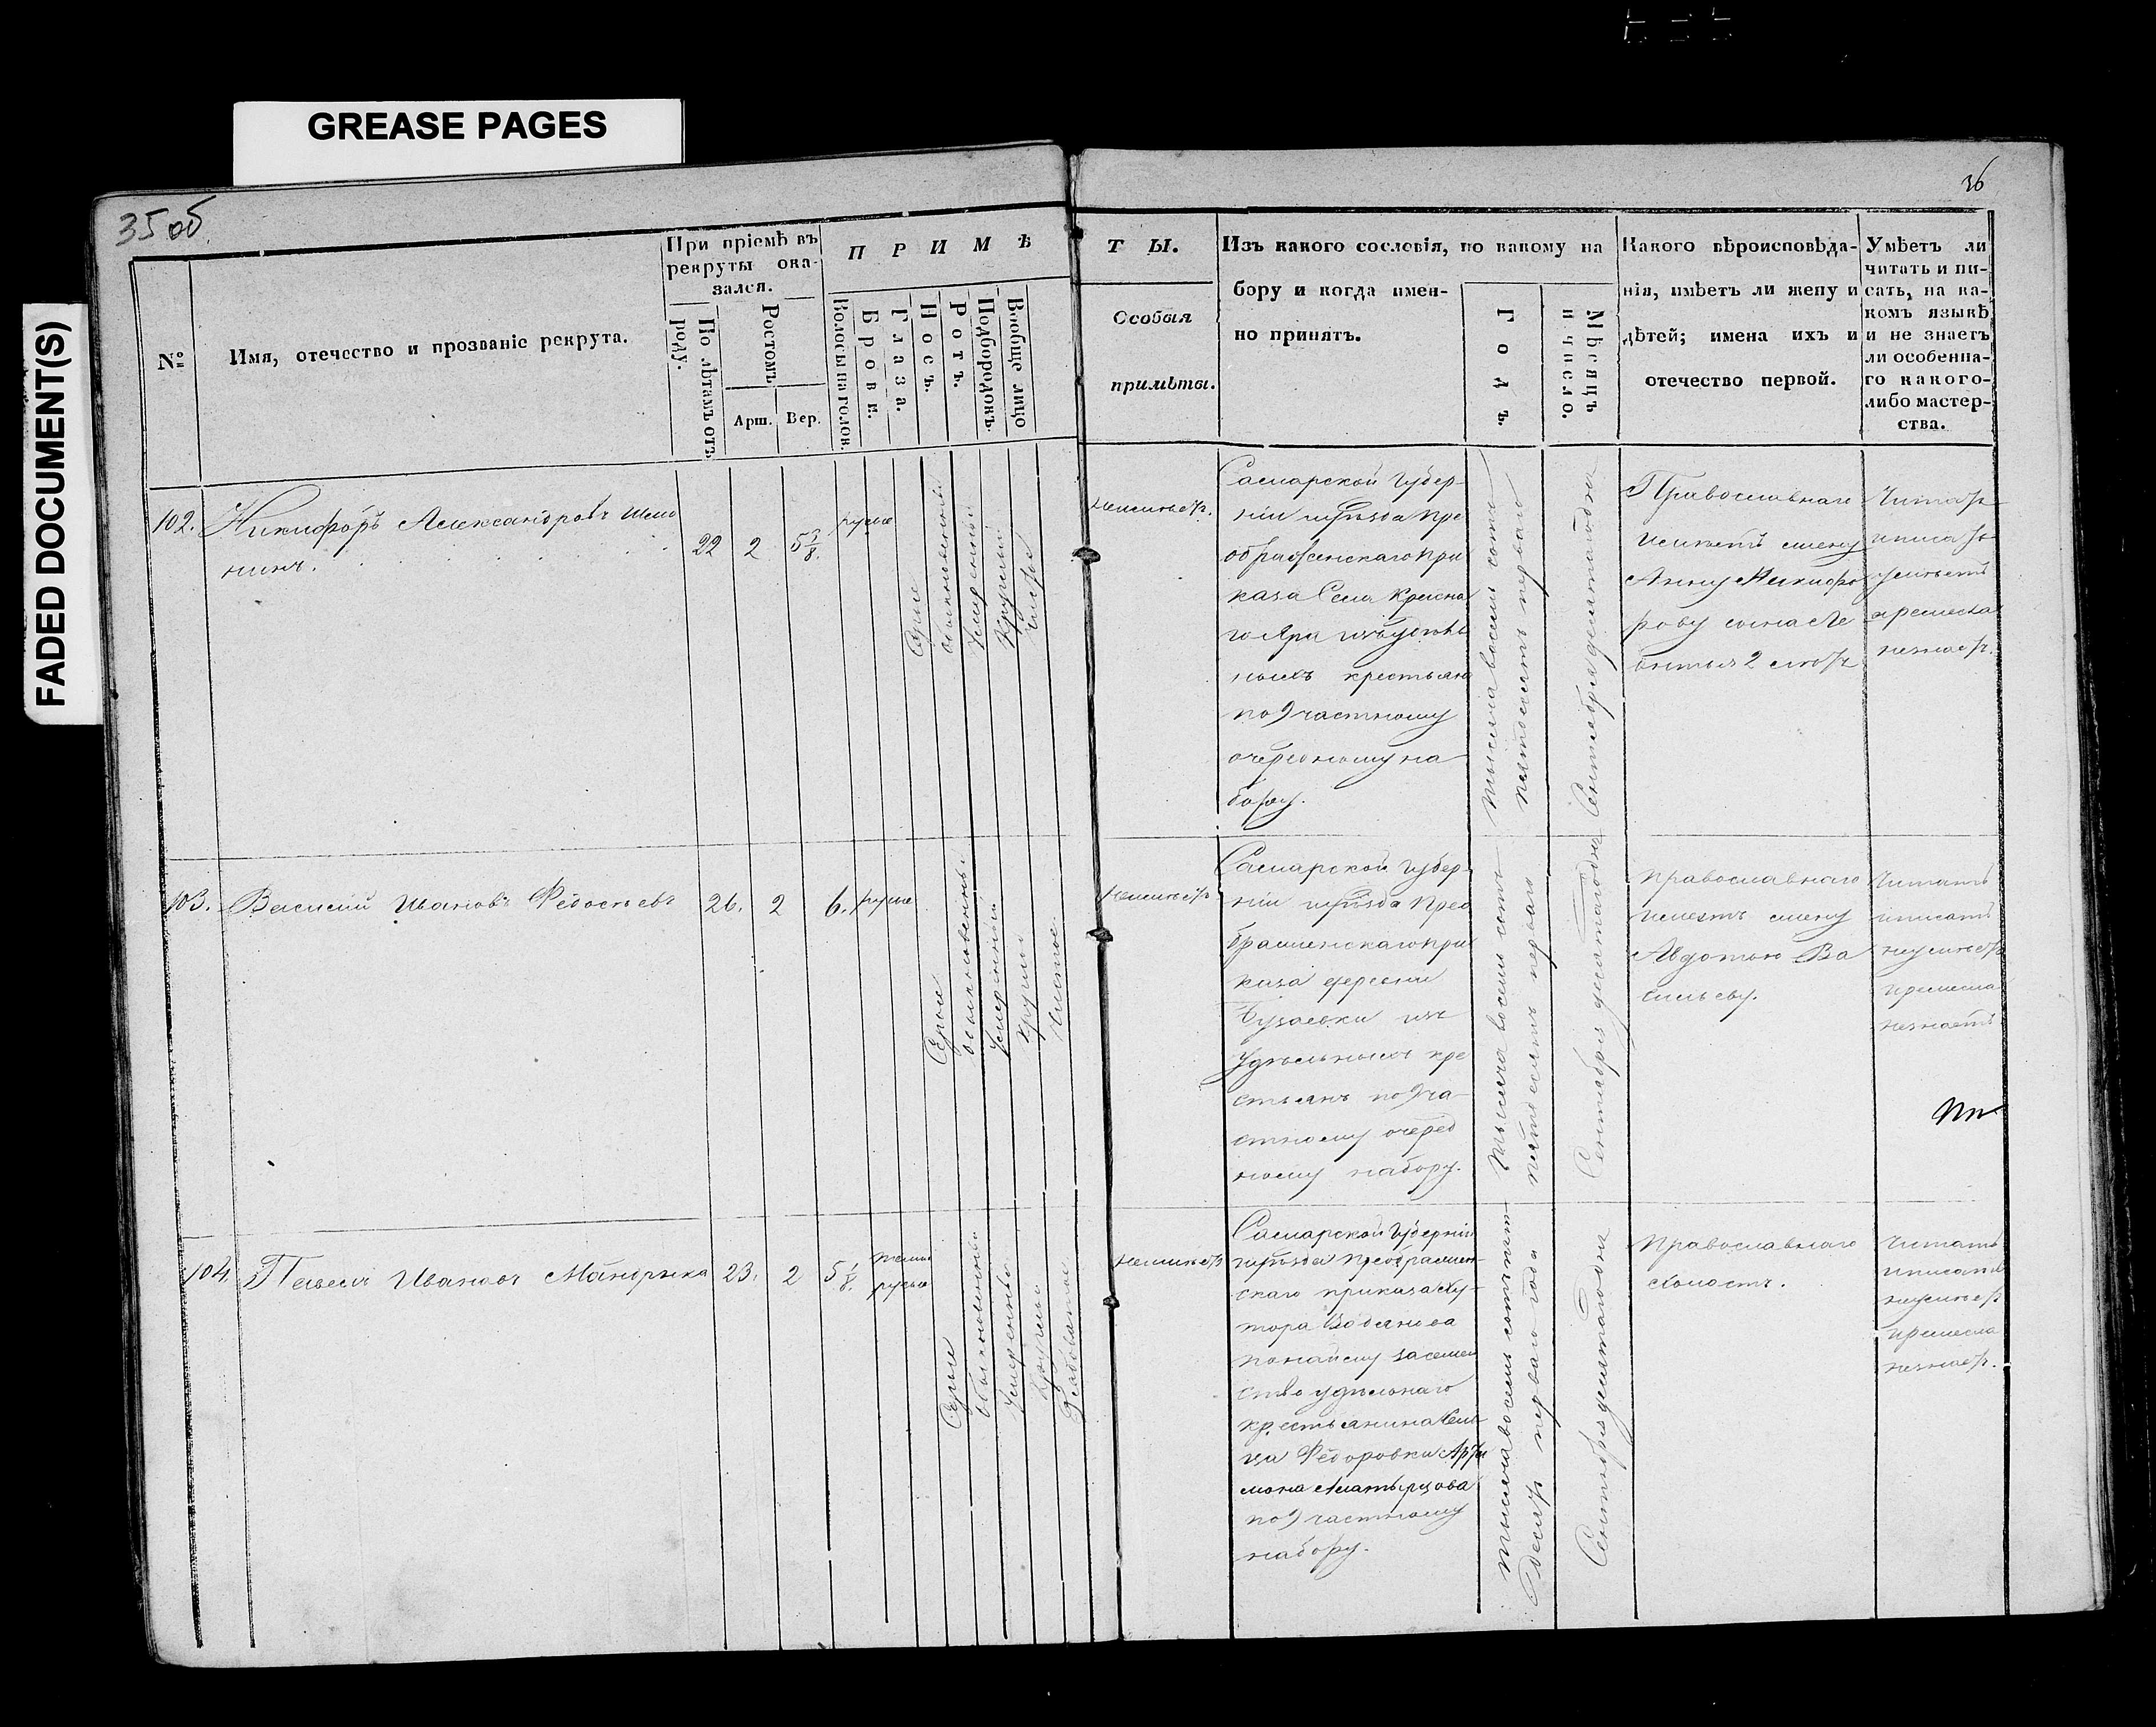 GREASE PAGES
FADED DOCUMENT(S)
35 об.
36
№
Имя, отечество и прозваніе рекрута.
При пріемѣ въ
рекруты ока-
зался.
По лѣтамъ отъ
роду.
Ростомъ
Арш.
Вер.
ПРИМѢ
Волосы на голов.
Брови.
Глаза.
Носъ.
Ротъ.
Подбородокъ.
Вообще лицо
ТЫ.
Особыя
примѣты.
Изъ какого сословія, по какому на
бору и когда имен-
но принятъ.
Годъ
Мѣсяцъ
и число.
Какого вѣроисповѣда-
нія, имѣетъ ли жену и
дѣтей; имена ихъ и
отечество первой.
Умѣетъ ли
читать и пи-
сать, на ка-
комъ языкѣ
и не знаетъ
ли особенна-
го какого-
либо мастер-
ства.
102.
Никифоръ Александровъ
нинъ.
22
2
5 3/8.
русые
Серые
обыкновенный
Умеренный
Круглый
Чистое
неимѣетъ.
Самарской Губер-
ніи Уѣзда Пре
ображенскаго при
каза Села Красна
го Яра изъ удѣль
ныхъ крестьянъ
по 9 частному
очередному на
бору.
тысяча восемь сотъ
пятьдесятъ перваго
Сентября десятаго дня
Православнаго
имѣетъ жену
Анну Никифо
рову сына Ле
онтья 2 лѣтъ
Читать
и писать
умѣетъ
и ремесла
незнаетъ.
103.
Василий Ивановъ Федосѣевъ
26.
2
6.
русые
Серые
обыкновенны
Умеренный
Круглый
Чистое
Неимѣетъ
Самарской Губер-
ніи Уѣзда Прео
браженскаго при
каза деревни
Бузаевки изъ
Удѣльныхъ кре
стьянъ по 9 ча-
стному очеред
ному набору.
тысяча восемь сотъ
пятьдесятъ перваго
Сентября десятаго дня
Православнаго
имѣетъ жену
Авдотью Ва
сильеву.
Читать
и писать
неумѣетъ
и ремесла
незнаетъ
104.
Павелъ Ивановъ Мандрыка
23.
2
5 1/8.
темно
русые
Серые
обыкновенный
Умеренный
Круглый
Рябоватое
неимѣетъ
Самарской Губерніи
Уѣзда Преображен-
скаго приказа Ху-
тора Водянова
по найму за семей
ство удѣльнаго
крестьянина Сель
ца Федоровки Арта
мона Алатырцова
по 9 частному
набору.
тысяча восемь сотъ пять
десятъ перваго года
Сентября десятаго дня
Православнаго
холостъ.
Читать
и писать
неумѣетъ
и ремесла
незнаетъ.